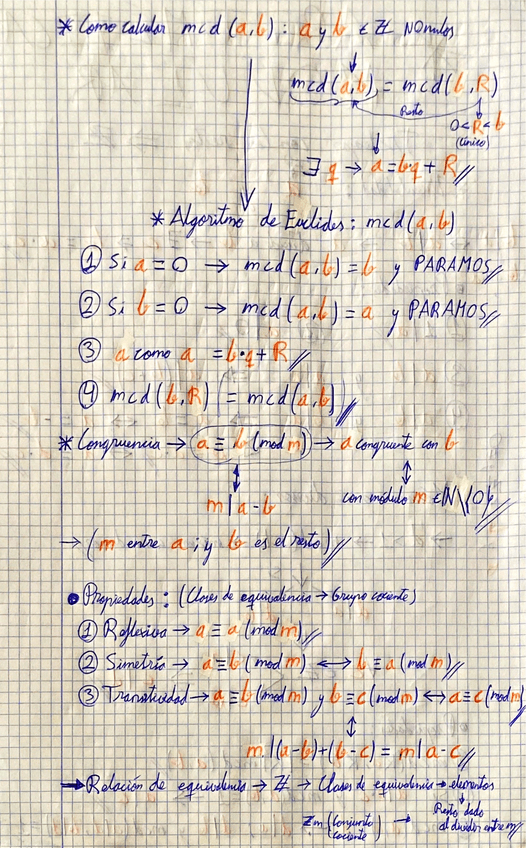 * Como calcular mcd(a,b) : a y b ∈ ℤ NO nulos
mcd(a,b) = mcd(b,R)
Resto
0<R<b
(único)
∃ q → a = b·q + R //
* Algoritmo de Euclides: mcd(a,b)
① Si a = 0 → mcd(a,b) = b y PARAMOS //
② Si b = 0 → mcd(a,b) = a y PARAMOS //
③ a como a = b·q + R //
④ mcd(b,R) (= mcd(a,b)) //
* Congruencia → a ≡ b (mod m) → a congruente con b
m | a - b
con módulo m ∈ ℕ\{0} //
→ (m entre a ; y b es el resto) //
• Propiedades : (Clases de equivalencia → Grupo cociente)
① Reflexiva → a ≡ a (mod m) //
② Simetría → a ≡ b (mod m) ↔ b ≡ a (mod m) //
③ Transitividad → a ≡ b (mod m) y b ≡ c (mod m) ↔ a ≡ c (mod m)
m | (a-b)+(b-c) = m | a-c //
→ Relación de equivalencia → ℤ → Clases de equivalencia → elementos
ℤm (Conjunto cociente) → Resto dado
al dividir entre m //